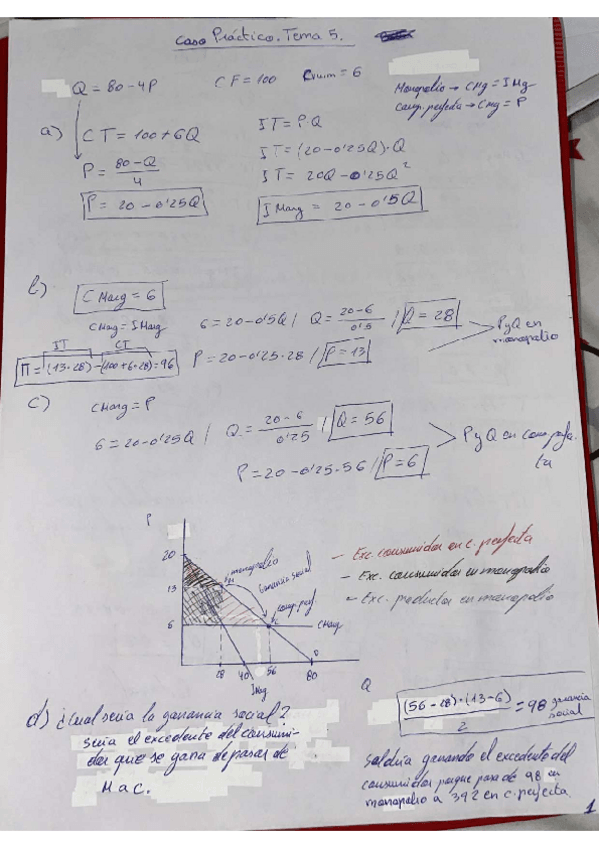 Caso Práctico. Tema 5.
Q = 80-4P CF=100 Cvum = 6
Monopolio → CMg = IMg
Comp. perfecta → CMg = P
a) CT = 100+6Q
IT = P.Q
IT = (20-0'25Q).Q
P = 80-Q / 4
IT = 20Q-0'25Q²
P = 20-0'25Q
I Marg = 20-0'5Q
b) C Marg = 6
CMarg = IMarg
6=20-0'5Q / Q= 20-6 / 0'5 / Q = 28
P y Q en monopolio
IT CT
Π = (13·28)-(100+6·28)=96
P=20-0'25·28 / P=13
c) CMarg = P
6=20-0'25Q / Q= 20-6 / 0'25 / Q = 56
P y Q en comp. perfecta
P=20-0'25·56 / P=6
P
20
13
6
monopolio
Ganancia social
comp. perf.
CMarg
D
18 40 56 80
IMg
Q
- Exc. consumidor en c. perfecta
- Exc. consumidor en monopolio
- Exc. productor en monopolio
d) ¿Cual seria la ganancia social?
Seria el excedente del consumi-
dor que se gana de pasar de
M a C.
(56-28)·(13-6) / 2 = 98 ganancia social
Saldria ganando el excedente del
consumidor porque pasa de 98 en
monopolio a 392 en c. perfecta.
1